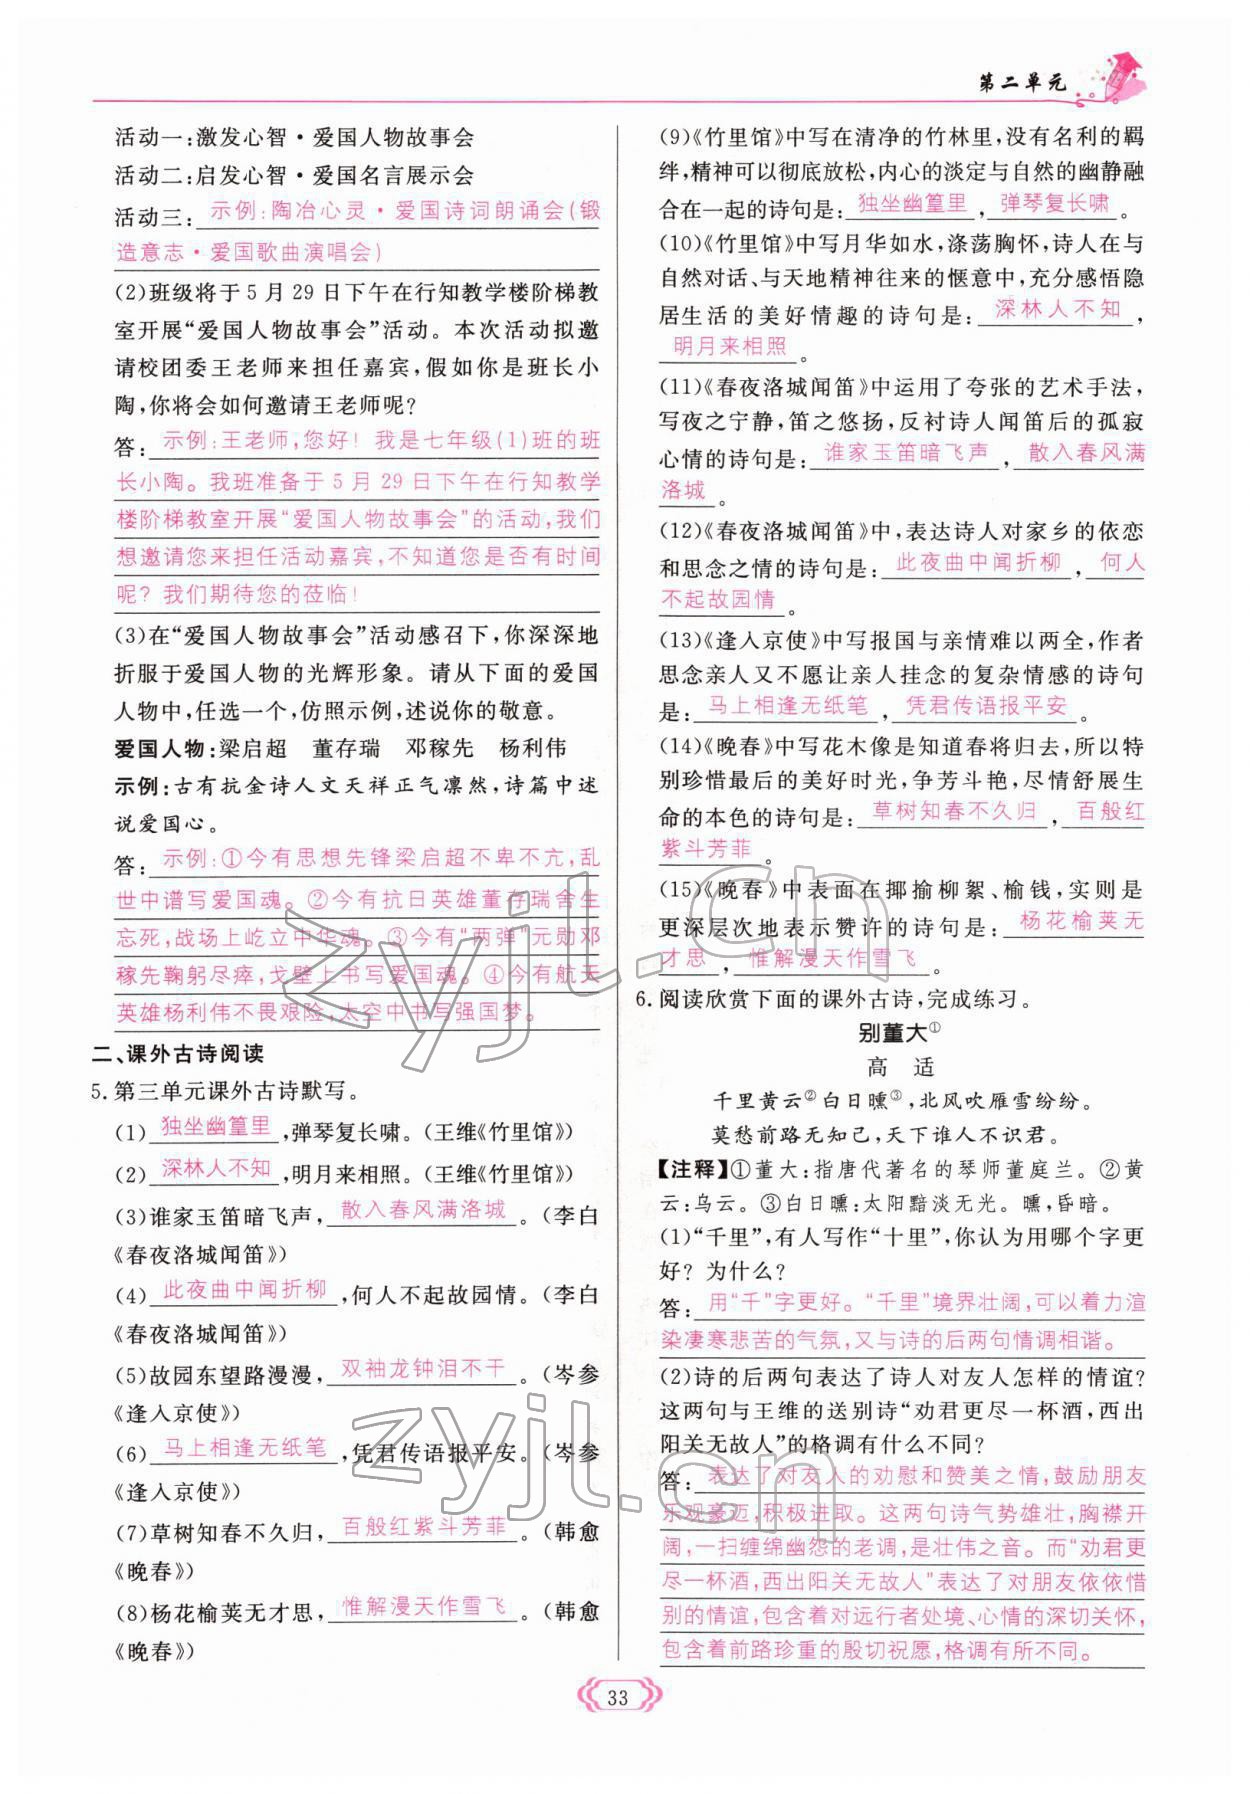 第二单元
活动一:激发心智·爱国人物故事会
活动二:启发心智·爱国名言展示会
活动三:示例:陶冶心灵·爱国诗词朗诵会(锻
造意志·爱国歌曲演唱会)
(2)班级将于5月29日下午在行知教学楼阶梯教
室开展“爱国人物故事会”活动。本次活动拟邀
请校团委王老师来担任嘉宾,假如你是班长小
陶,你将会如何邀请王老师呢?
答:示例:王老师,您好!我是七年级(1)班的班
长小陶。我班准备于5月29日下午在行知教学
楼阶梯教室开展“爱国人物故事会”的活动,我们
想邀请您来担任活动嘉宾,不知道您是否有时间
呢?我们期待您的莅临!
(3)在“爱国人物故事会”活动感召下,你深深地
折服于爱国人物的光辉形象。请从下面的爱国
人物中,任选一个,仿照示例,述说你的敬意。
爱国人物:梁启超 董存瑞 邓稼先 杨利伟
示例:古有抗金诗人文天祥正气凛然,诗篇中述
说爱国心。
答:示例:①今有思想先锋梁启超不卑不亢,乱
世中谱写爱国魂。②今有抗日英雄董存瑞舍生
忘死,战场上屹立中华魂。③今有“两弹”元勋邓
稼先鞠躬尽瘁,戈壁上书写爱国魂。④今有航天
英雄杨利伟不畏艰险,太空中书写强国梦。
二、课外古诗阅读
5.第三单元课外古诗默写。
(1)独坐幽篁里,弹琴复长啸。(王维《竹里馆》)
(2)深林人不知,明月来相照。(王维《竹里馆》)
(3)谁家玉笛暗飞声,散入春风满洛城。(李白
《春夜洛城闻笛》)
(4)此夜曲中闻折柳,何人不起故园情。(李白
《春夜洛城闻笛》)
(5)故园东望路漫漫,双袖龙钟泪不干。(岑参
《逢入京使》)
(6)马上相逢无纸笔,凭君传语报平安。(岑参
《逢入京使》)
(7)草树知春不久归,百般红紫斗芳菲。(韩愈
《晚春》)
(8)杨花榆荚无才思,惟解漫天作雪飞。(韩愈
《晚春》)
(9)《竹里馆》中写在清净的竹林里,没有名利的羁
绊,精神可以彻底放松,内心的淡定与自然的幽静融
合在一起的诗句是:独坐幽篁里,弹琴复长啸。
(10)《竹里馆》中写月华如水,涤荡胸怀,诗人在与
自然对话、与天地精神往来的惬意中,充分感悟隐
居生活的美好情趣的诗句是:深林人不知,
明月来相照。
(11)《春夜洛城闻笛》中运用了夸张的艺术手法,
写夜之宁静,笛之悠扬,反衬诗人闻笛后的孤寂
心情的诗句是:谁家玉笛暗飞声,散入春风满
洛城。
(12)《春夜洛城闻笛》中,表达诗人对家乡的依恋
和思念之情的诗句是:此夜曲中闻折柳,何人
不起故园情。
(13)《逢入京使》中写报国与亲情难以两全,作者
思念亲人又不愿让亲人挂念的复杂情感的诗句
是:马上相逢无纸笔,凭君传语报平安。
(14)《晚春》中写花木像是知道春将归去,所以特
别珍惜最后的美好时光,争芳斗艳,尽情舒展生
命的本色的诗句是:草树知春不久归,百般红
紫斗芳菲。
(15)《晚春》中表面在揶揄柳絮、榆钱,实则是
更深层次地表示赞许的诗句是:杨花榆荚无
才思,惟解漫天作雪飞。
6.阅读欣赏下面的课外古诗,完成练习。
别董大①
高 适
千里黄云②白日曛③,北风吹雁雪纷纷。
莫愁前路无知己,天下谁人不识君。
【注释】①董大:指唐代著名的琴师董庭兰。②黄
云:乌云。③白日曛:太阳黯淡无光。曛,昏暗。
(1)“千里”,有人写作“十里”,你认为用哪个字更
好?为什么?
答:用“千”字更好。“千里”境界壮阔,可以着力渲
染凄寒悲苦的气氛,又与诗的后两句情调相谐。
(2)诗的后两句表达了诗人对友人怎样的情谊?
这两句与王维的送别诗“劝君更尽一杯酒,西出
阳关无故人”的格调有什么不同?
答:表达了对友人的劝慰和赞美之情,鼓励朋友
乐观豪迈,积极进取。这两句诗气势雄壮,胸襟开
阔,一扫缠绵幽怨的老调,是壮伟之音。而“劝君更
尽一杯酒,西出阳关无故人”表达了对朋友依依惜
别的情谊,包含着对远行者处境、心情的深切关怀,
包含着前路珍重的殷切祝愿,格调有所不同。
33
zyjl.cn
zyjl.cn